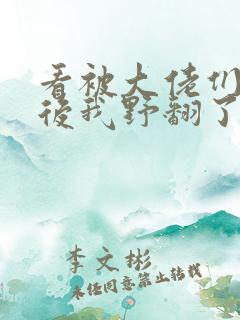 看被大佬们
後我野翻了
李文彬
未经同意禁止转载